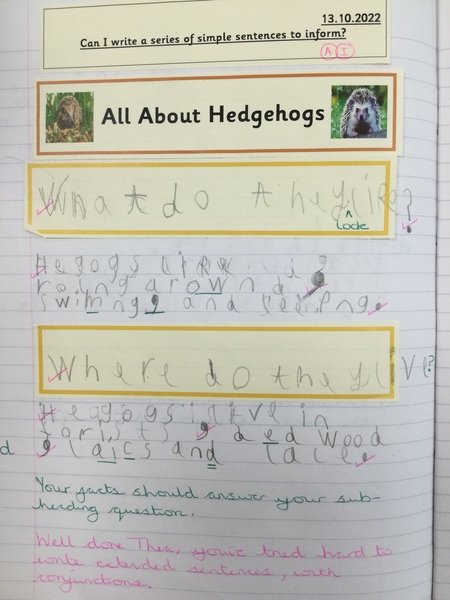 13.10.2022
Can I write a series of simple sentences to inform?
A I
All About Hedgehogs
What do they like?
look
Hegogs like
roling arownd
swiming and
Where do they live?
Heagogs live in
ded wood
laics and
Your facts should answer your sub-
heading question.
Well done Theo, you've tried hard to
write extended sentences, with
conjunctions.